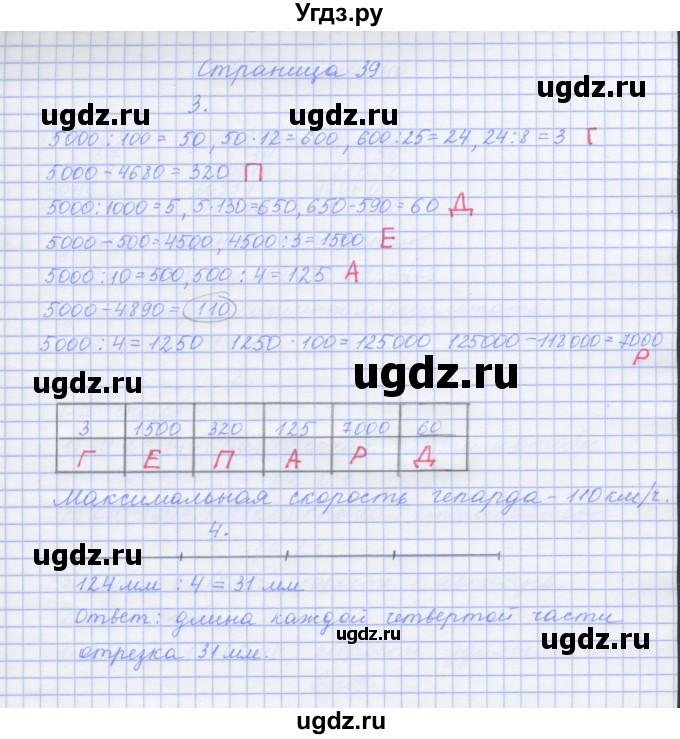 Угдз.ру
Страница 39
ugdz.ru
3.
ugdz.ru ugdz.ru
5000 : 100 = 50, 50 · 12 = 600, 600 : 25 = 24, 24 : 8 = 3 Г
5000 - 4680 = 320 П
5000 : 1000 = 5, 5 · 130 = 650, 650 - 590 = 60 Д
ugdz.ru ugdz.ru
5000 - 500 = 4500, 4500 : 3 = 1500 Е
5000 : 10 = 500, 500 : 4 = 125 А
5000 - 4890 = 110
5000 : 4 = 1250 1250 · 100 = 125000 125000 - 118000 = 7000
Р
ugdz.ru ugdz.ru
3 1500 320 125 7000 60
Г Е П А Р Д
Максимальная скорость гепарда - 110 км/ч.
4.
ugdz.ru ugdz.ru
124 мм : 4 = 31 мм
Ответ: длина каждой четвертой части
ugdz.ru
отрезка 31 мм.
ugdz.ru